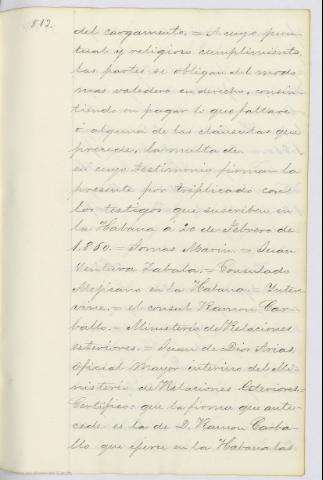 812.
del cargamento. = A cuyo pun-
tual y religioso cumplimiento
las partes se obligan del modo
mas valedero en derecho, consin-
tiendo en pagar lo que faltare
ó alguna de las cláusulas que
precede, la multa de
en cuyo testimonio firman la
presente por triplicado con
los testigos que suscriben en
la Habana á 20 de Febrero de
1.850. = Tomas Marin. = Juan
Ventura Zabala. = Consulado
Mejicano en la Habana. = Inter-
vine. = el consul Ramon Car-
ballo. = Ministerio de Relaciones
esteriores. = Juan de Dios Arias,
Oficial Mayor interino del Mi-
nisterio de Relaciones Esteriores =
Certifico: que la firma que ante-
cede es la de D. Ramon Carba-
llo que ejerce en la Habana las